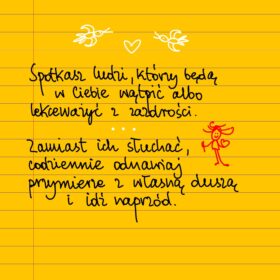 Spotkasz ludzi, który będą
w Ciebie wątpić albo
lekceważyć z zazdrości.
...
Zamiast ich słuchać,
codziennie odnawiaj
przymierze z własną duszą
i idź naprzód.